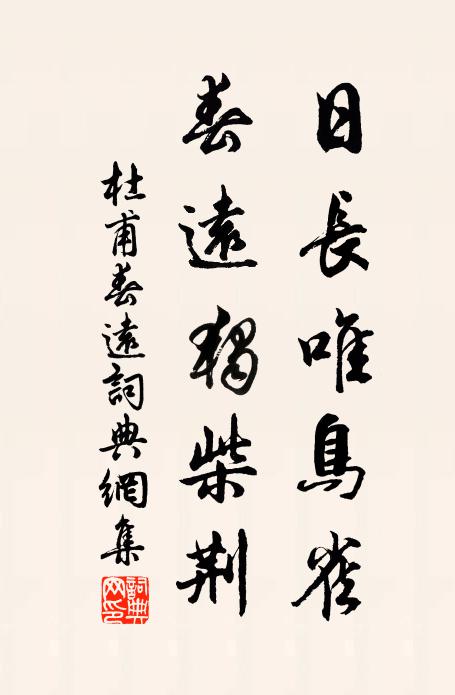 日長唯鳥雀
春遠獨柴荆
杜甫春遠詞典網集
詞典
网印